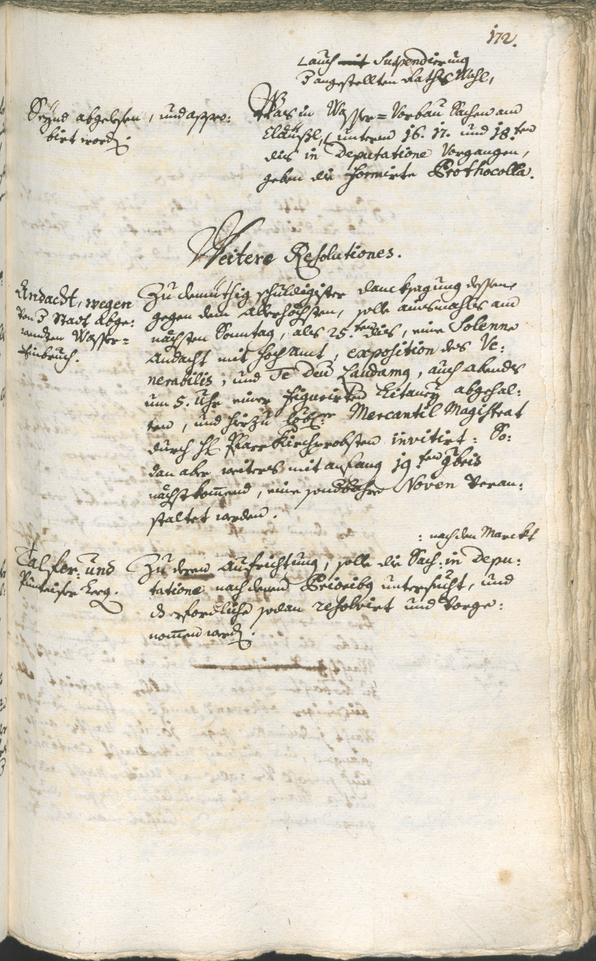 172.
auch mit Suspendierung
angestellten Raths Wahl,
Seynd abgelesen, und appro:
birt word.
Was in Wasser=Verbau Sachen am
unterm 16. 17. und 18.ten
dis in Deputatione Vorgangen,
geben die formirte Prothocolla.
Weitere Resolutiones.
Andacht, wegen
Stadt abge:
wendten Wasser=
Einbruch.
Zu demüthig schuldigster dancksagung dessen
gegen dem Allerhöchsten, solle ainsmahls am
nächsten Sonntag, als 25.ten dis, eine Solenne
Andacht mit Hochamt, exposition des Ve:
nerabilis, und Te Deu Laudamq, auch abends
um 5. Uhr einer Figurirten Litaney abgehal:
ten, und hierzu Löbl: Mercantil Magistrat
durch H. Pfarr Kirchprobsten invitirt: So:
dan aber weiters mit anfang 19.ten 9bris
nächstkommend, eine Noven veran:
staltet werden.
: nach dem Marckt
Talfer: und
Zu deren Aufrichtung, solle die Sach: in Depu:
tatione nach denen Prioribq untersucht, und
d erforderliche sodan resolvirt und Vorge:
nomen werd.